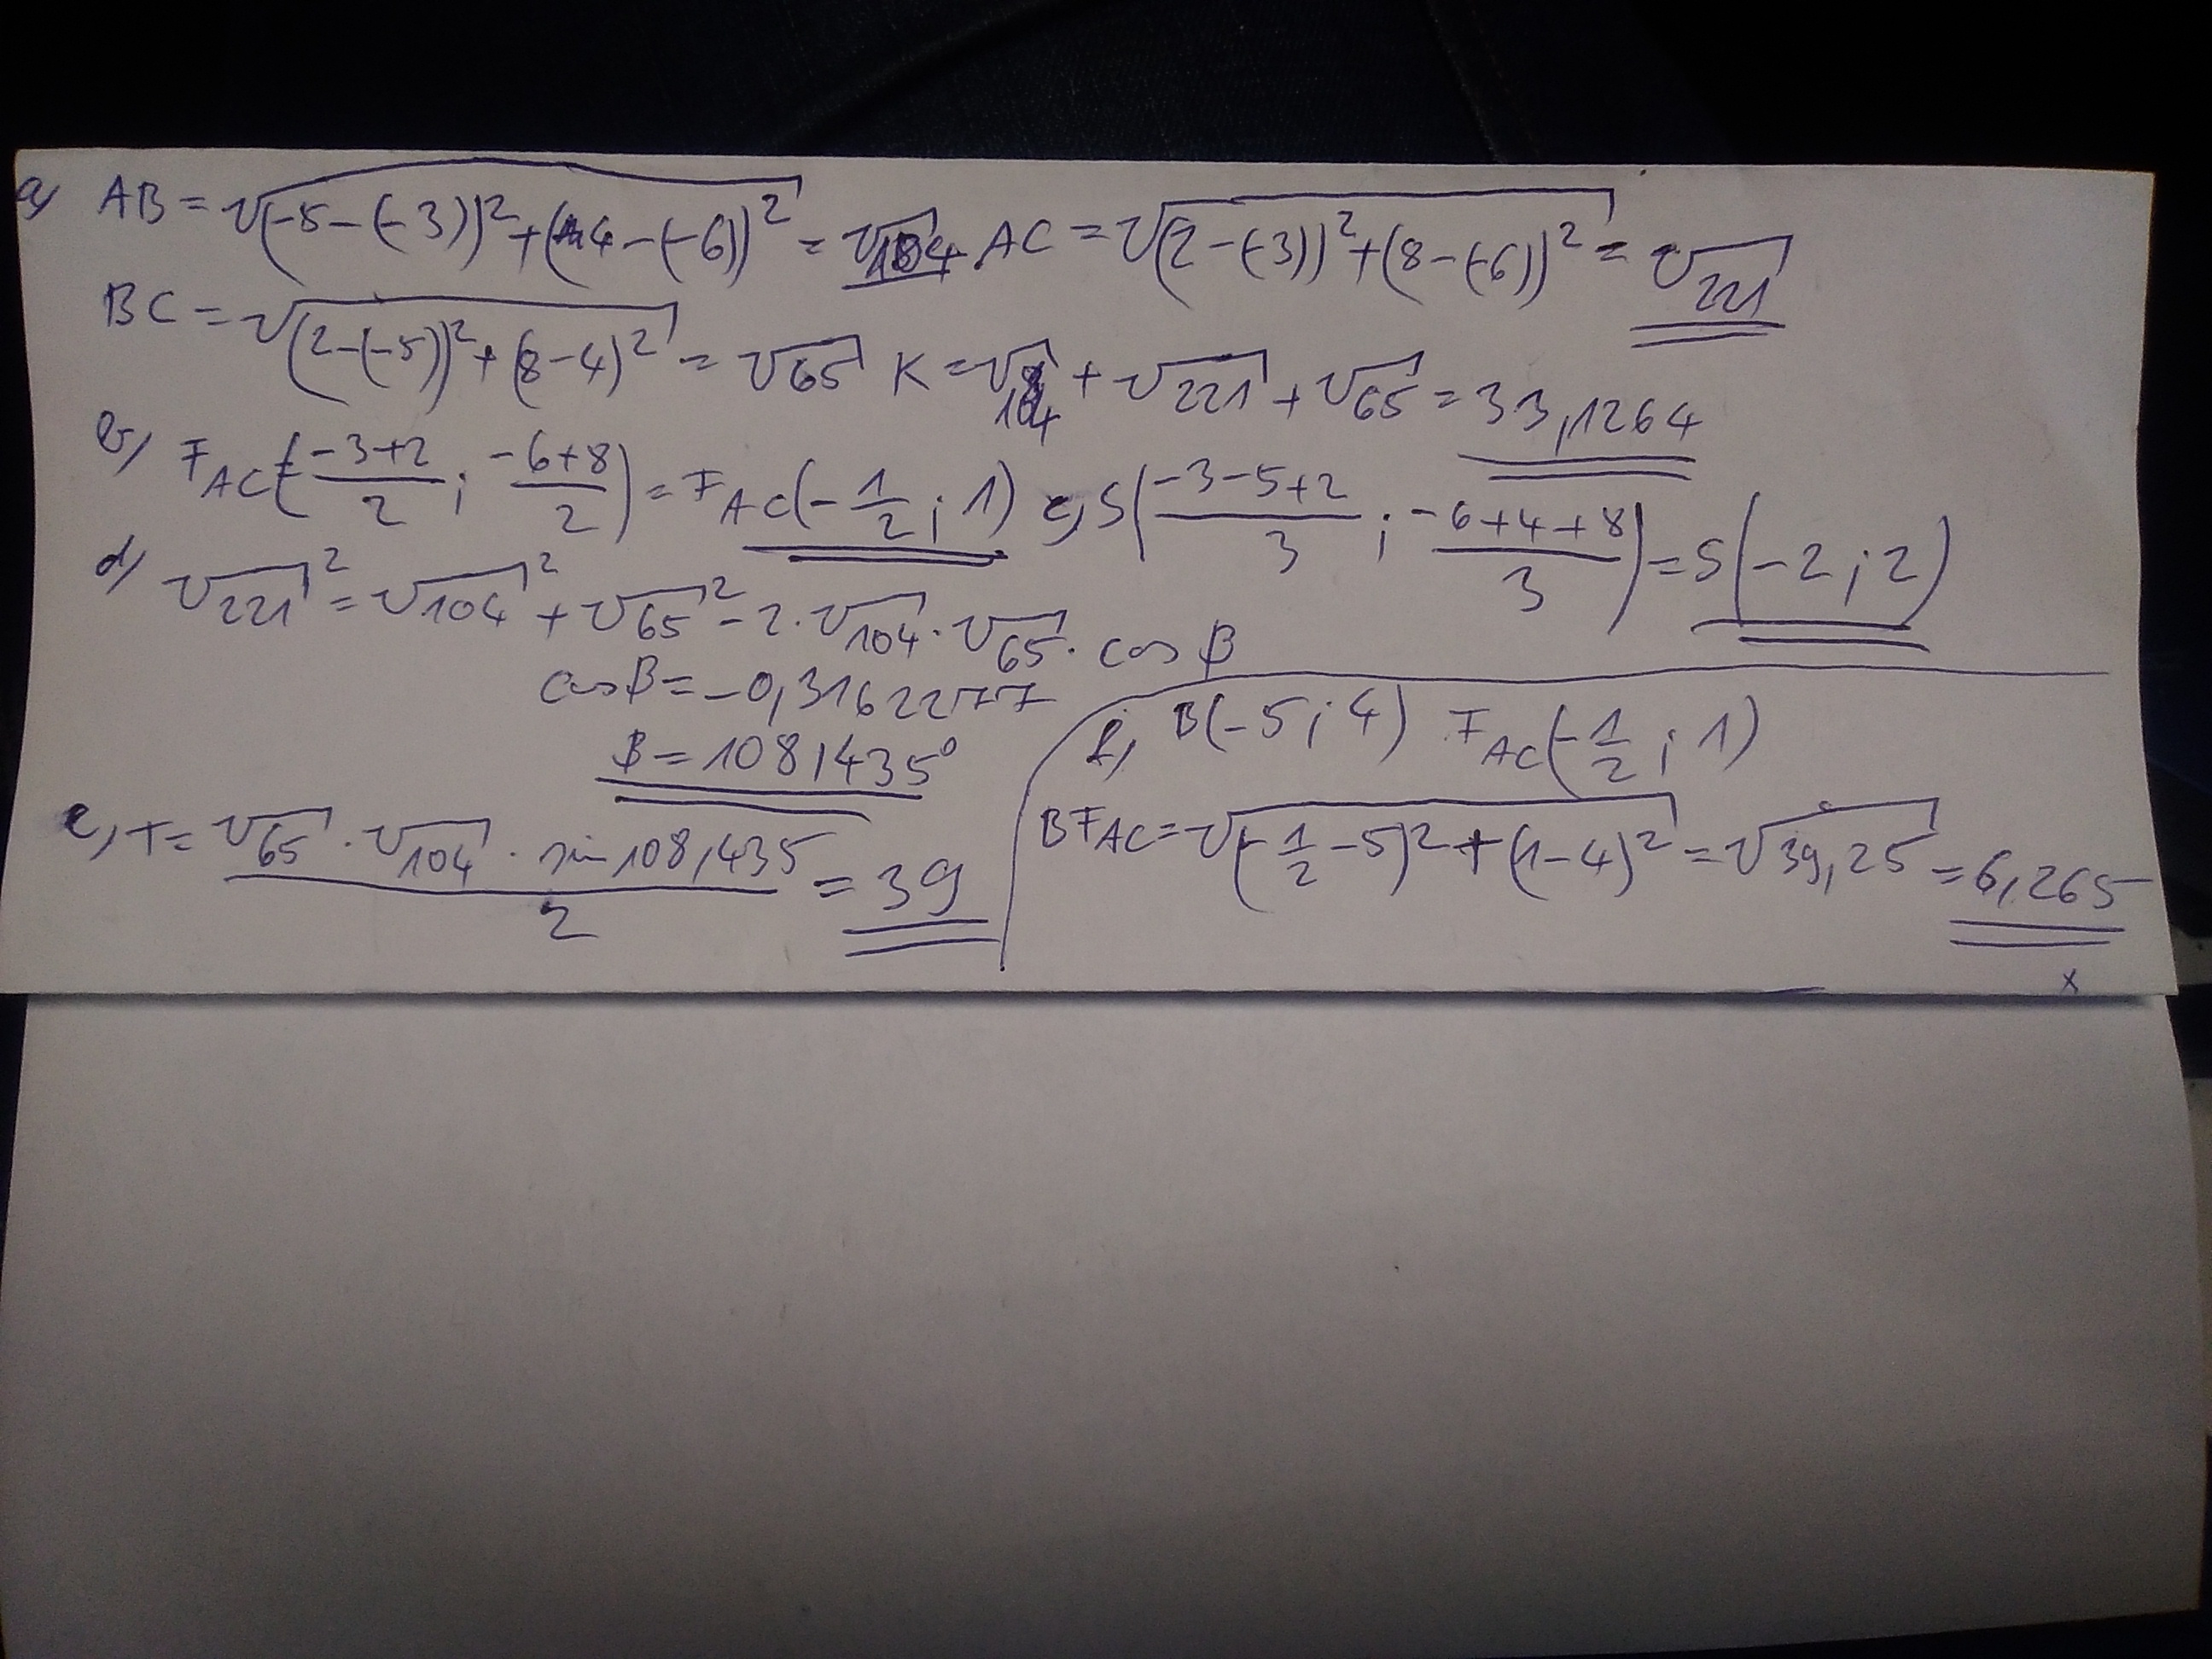 a) AB = √(-5-(-3))²+(4-(-6))² = √104 AC = √(2-(-3))²+(8-(-6))² = √221
BC = √(2-(-5))²+(8-4)² = √65 K = √104 + √221 + √65 = 33,1264
b) F_AC(-3+2/2 ; -6+8/2) = F_AC(-1/2 ; 1) c, S(-3-5+2/3 ; -6+4+8/3) = S(-2 ; 2)
d) √221² = √104² + √65² - 2·√104·√65· cos β
cos β = -0,3162277
β = 108,435°
f, B(-5 ; 4) F_AC(-1/2 ; 1)
e, T = √65 · √104 · sin 108,435/2 = 39
BF_AC = √(-1/2-5)²+(1-4)² = √39,25 = 6,265
x